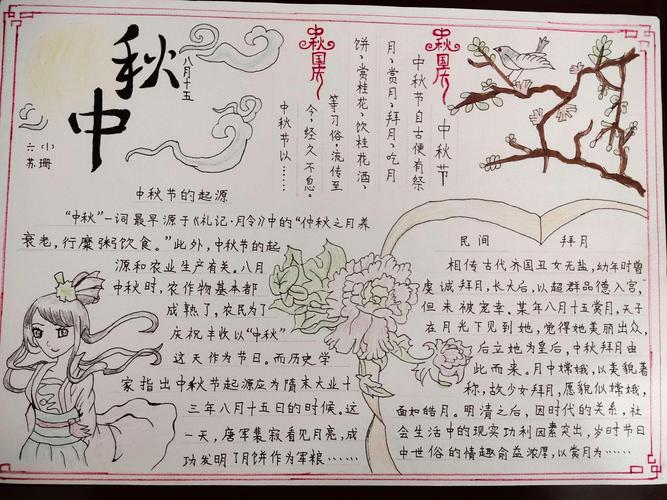 中秋
八月十五
六(1)
苏珊
中秋国庆
中秋国庆
中秋节
中秋节自古便有祭
月、赏月、拜月、吃月
饼、赏桂花、饮桂花酒、
等习俗，流传至
今，经久不息。
中秋节以……
中秋节的起源
“中秋”一词最早源于《礼记·月令》中的“仲秋之月养
衰老，行糜粥饮食。”此外，中秋节的起
源和农业生产有关。八月
中秋时，农作物基本都
成熟了，农民为了
庆祝丰收以“中秋”
这天作为节日。而历史学
家指出中秋节起源应为隋末大业十
三年八月十五日的时候。这
一天，唐军裴寂看见月亮，成
功发明了月饼作为军粮……
民间 拜月
相传古代齐国丑女无盐，幼年时曾
虔诚拜月，长大后，以超群品德入宫，
但未被宠幸。某年八月十五赏月，天子
在月光下见到她，觉得她美丽出众，
后立她为皇后，中秋拜月由
此而来。月中嫦娥，以美貌著
称，故少女拜月，愿貌似嫦娥，
面如皓月。明清之后，因时代的关系，社
会生活中的现实功利因素突出，岁时节日
中世俗的情趣俞益浓厚，以赏月为……